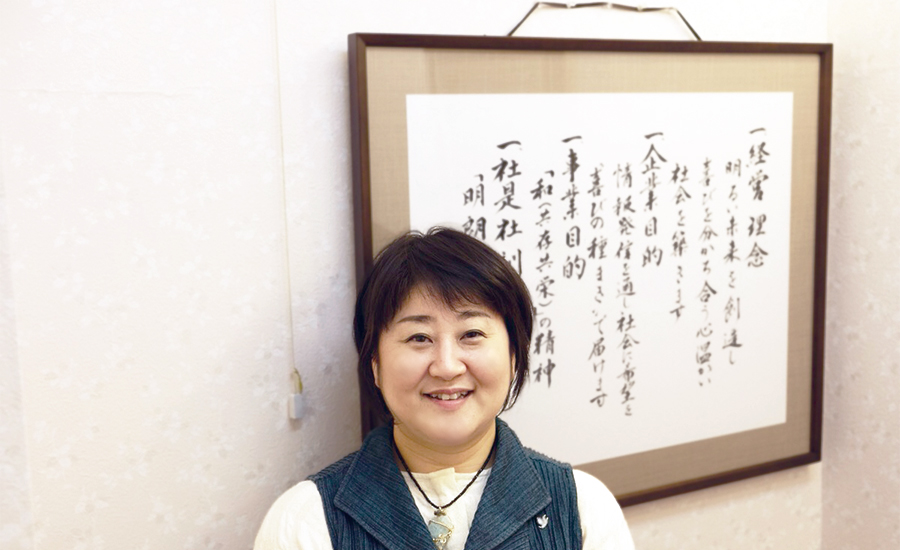 一、経営理念
明るい未来を創造し
喜びを分かち合う心温かい
社会を築きます
一、企業目的
情報発信を通し社会に希望と
喜びの種まきいで届けます
一、事業目的
「和（共存共栄）の精神
一、社是社訓
「明朗